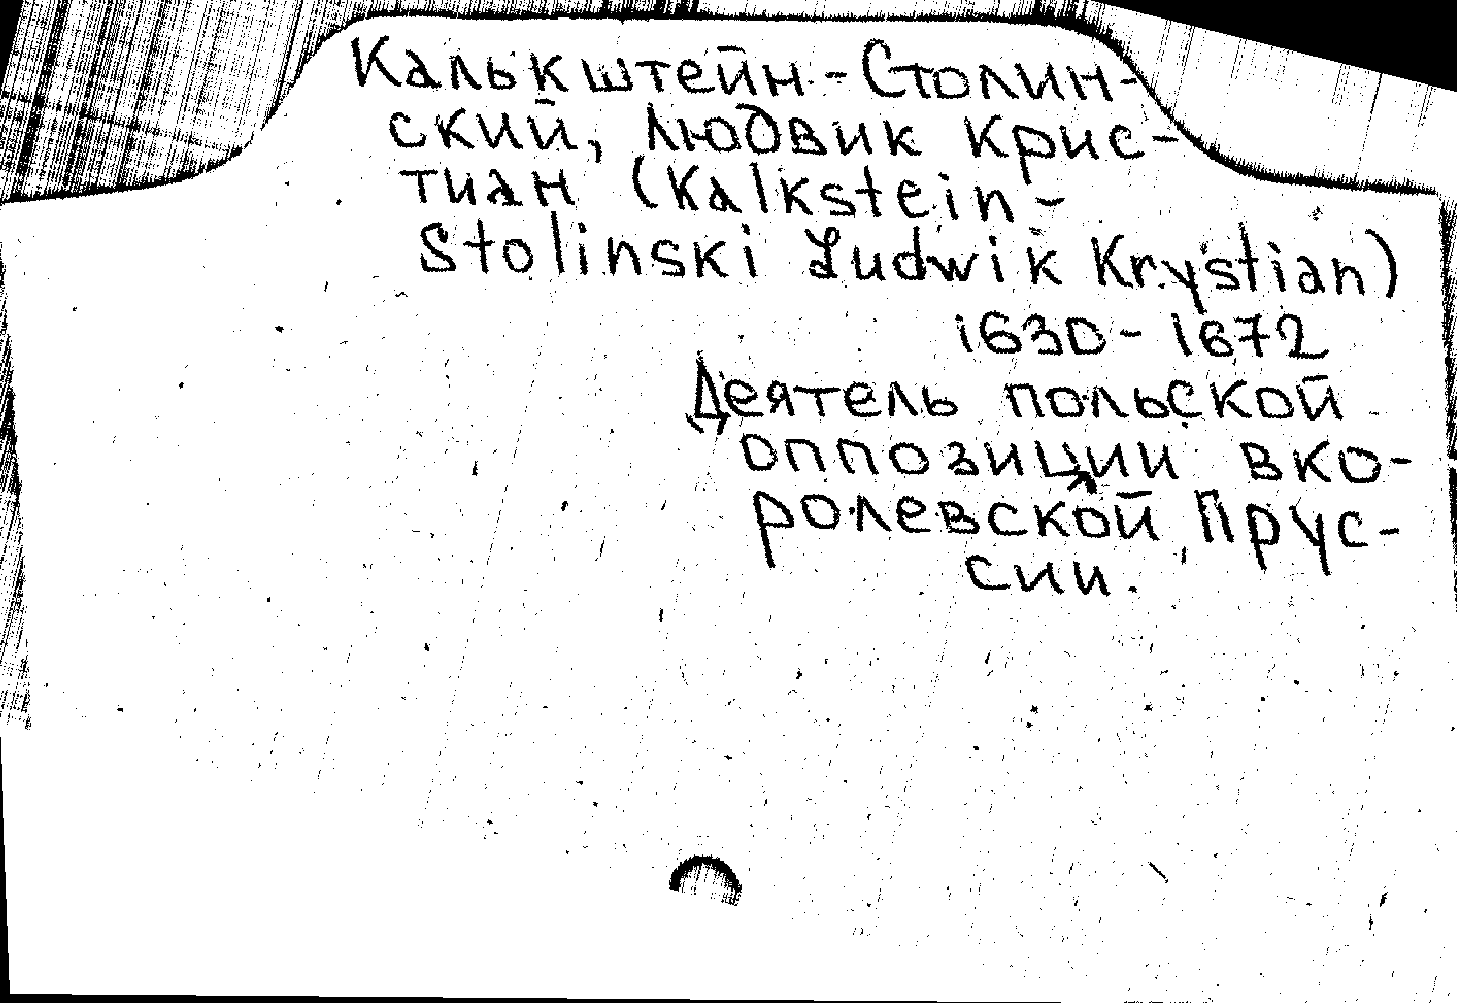 Калькштейн-Столин-
ский, Людвик Крис-
тиан (Kalkstein-
Stolinski Ludwik Krystian)
1630-1672
Деятель польской
оппозиции вко-
ролевской Прус-
сии.